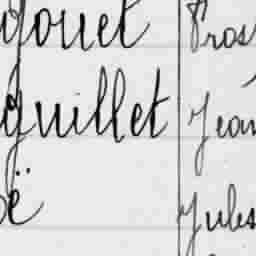 gouet Pros
guillet Jean
oë Jules